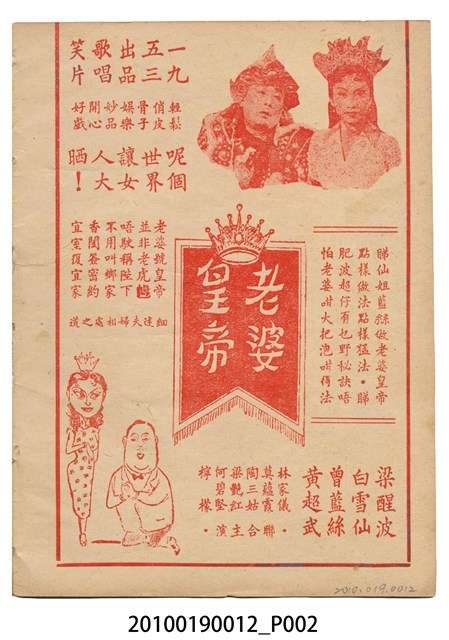 一九
五三
出品
歌唱
笑片
輕鬆
俏皮
骨子
娛樂
妙品
開心
好戲
呢個
世界
讓女
人大
晒！
睇仙姐藍絲做老婆皇帝
點樣做法點樣猛法・睇
肥波超仔有乜野秘訣唔
怕老婆咁大把泡咁得法
老婆
皇帝
老婆號皇帝
並非老虎乸
唔駛稱陛下
不用叫鄉家
香閨簽密約
宜室復宜家
細述夫婦相處之道
梁醒波
白雪仙
曾藍絲
黃超武
林家儀・
莫蘊霞聯
陶三姑合
梁艷紅主
何碧堅演
檸檬・
2010.019.0012
20100190012_P002